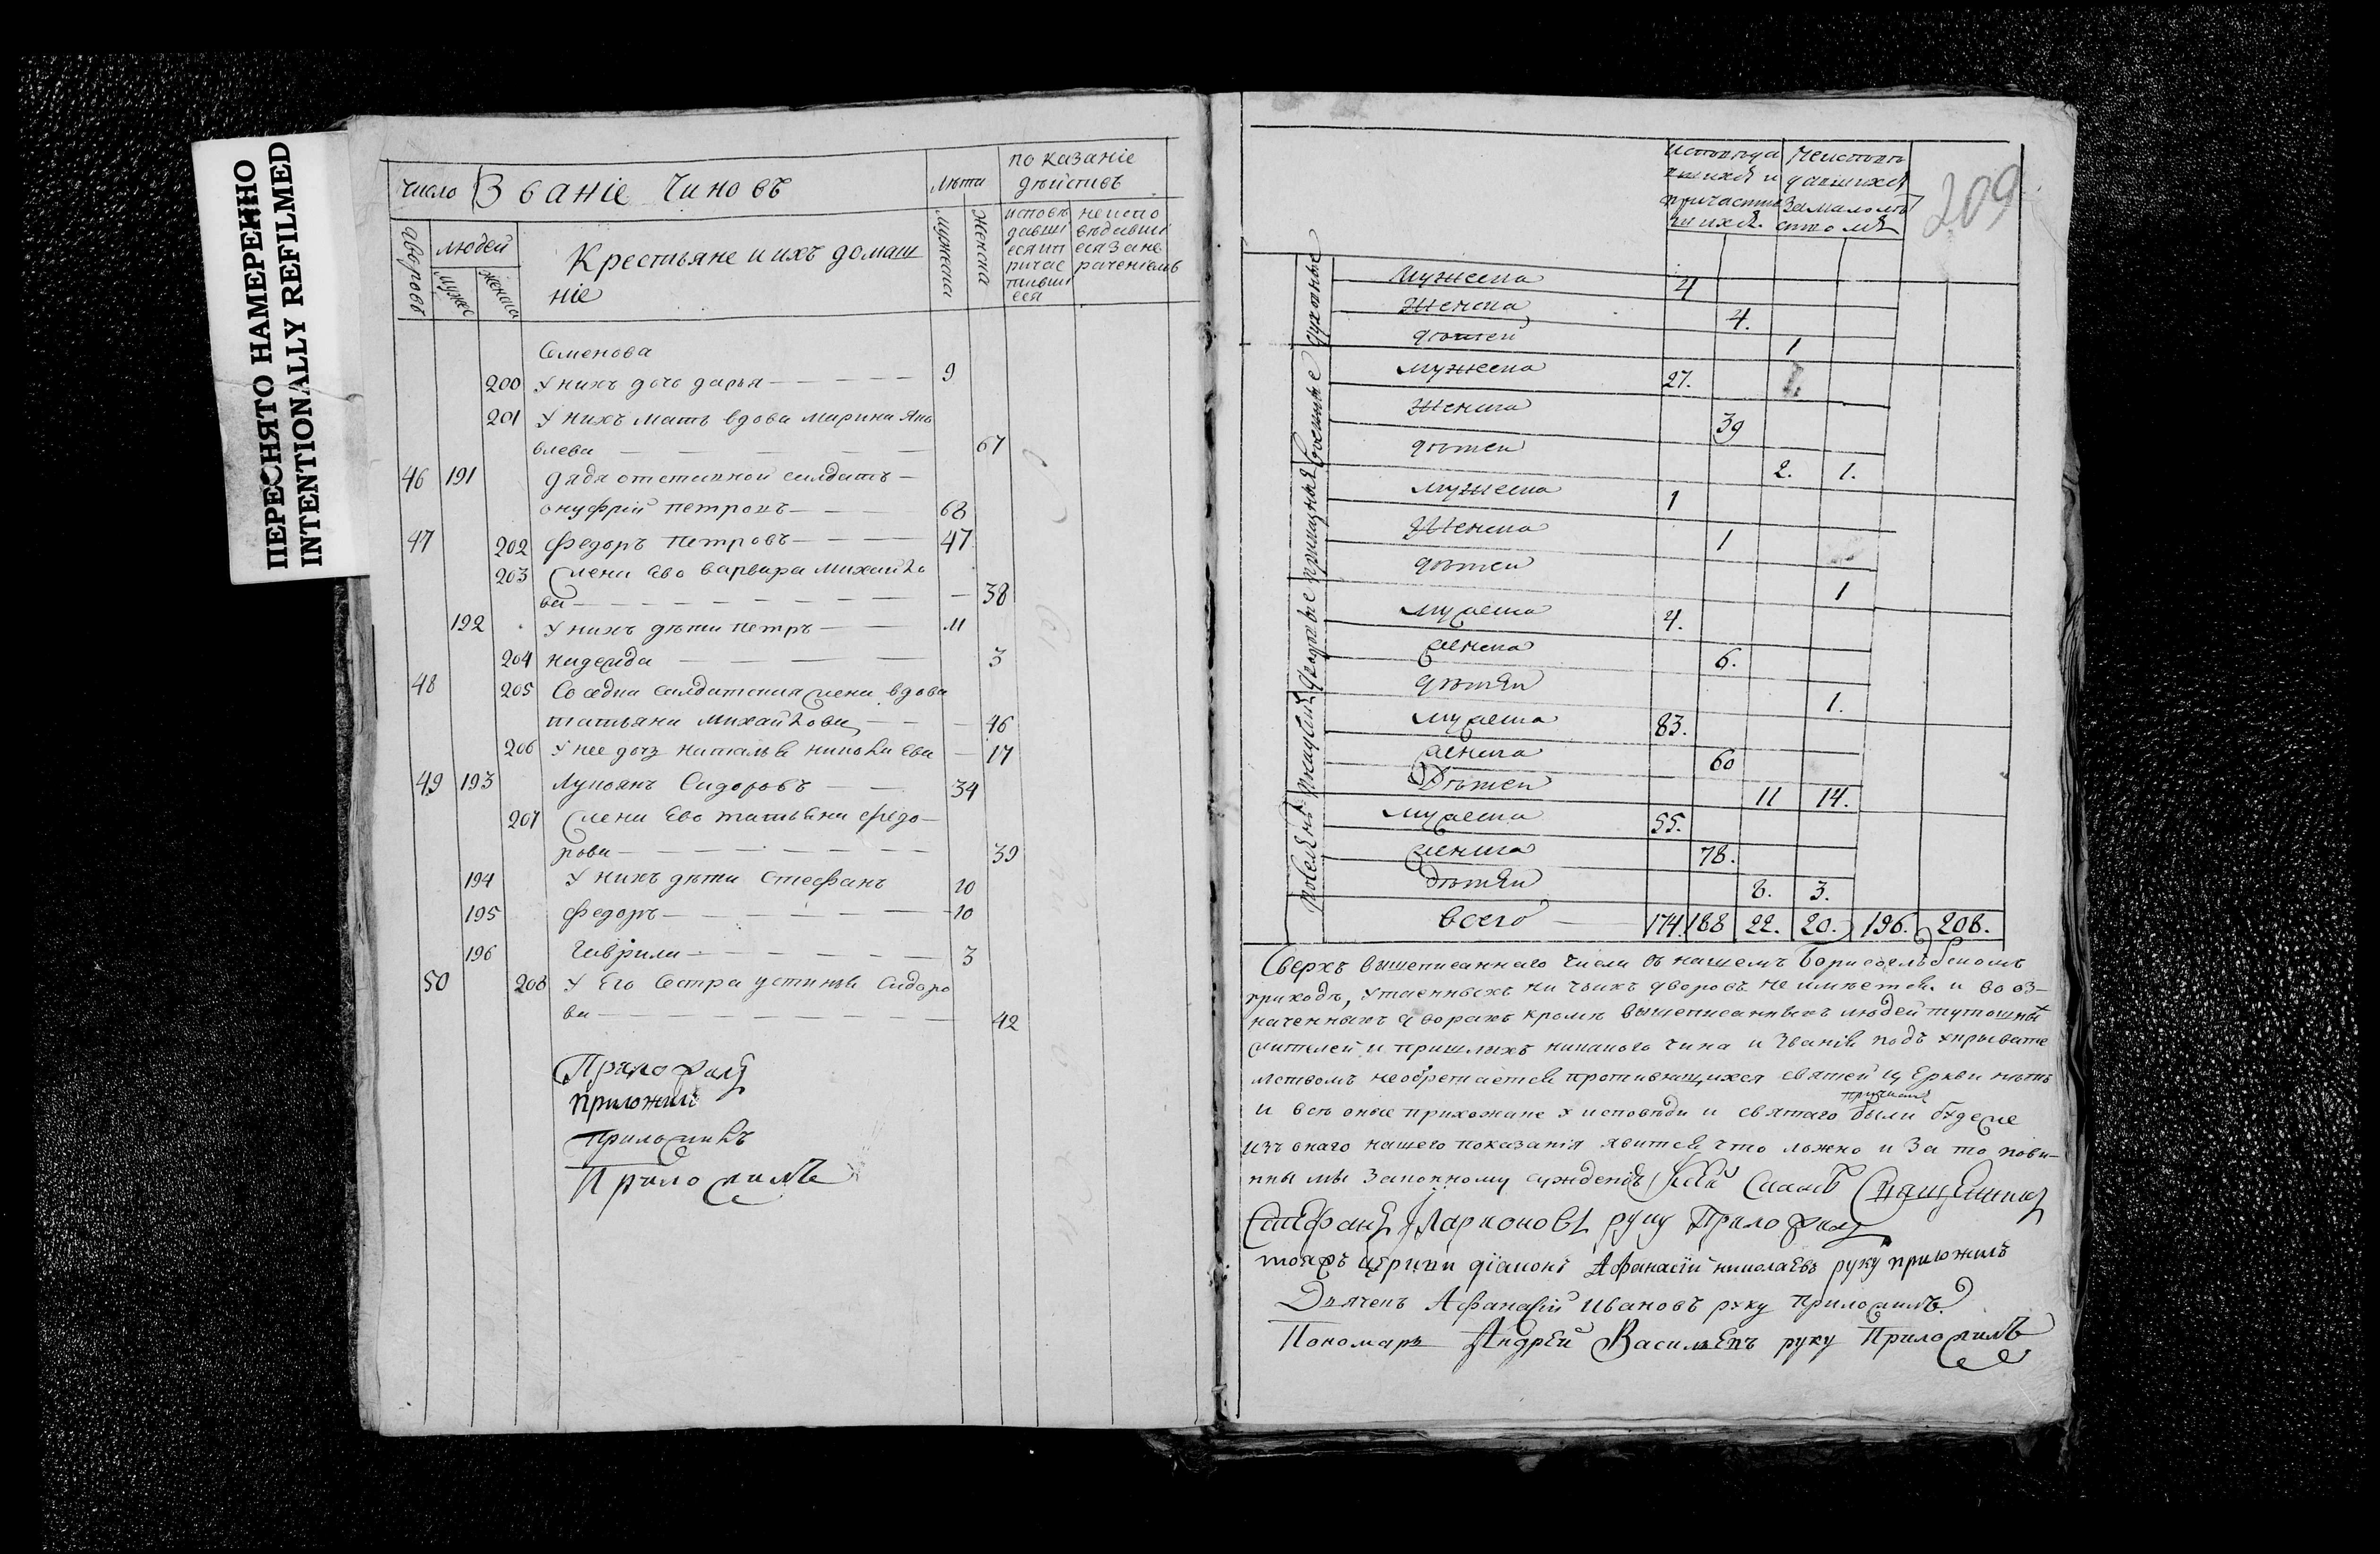 ПЕРЕСНЯТО НАМЕРЕННО
INTENTIONALLY REFILMED
число Званіе Чиновъ лѣта показаніе дѣйствъ
дворовъ людей мужес женска
Крестьяне и ихъ домаш
ніе
мужеска женска
исповѣ
давші
еся и п
ричас
тивші
еся
неиспо
вѣдавші
еся за не
раченіемъ
Семенова
200 У нихъ дочь дарья 9
201 У нихъ мать вдова марина Яко
влева 67
46 191 дядя отставной салдатъ
онуфрій петровъ 68
47 202 федоръ петровъ 47
203 жена ево варвара михайло
ва 38
192 у нихъ дѣти петръ 11
204 надежда 3
48 205 Соседка салдатская жена вдова
татьяна михайлова 46
206 У нее дочь наталья николаева 17
49 193 Лукоянъ Сидоровъ 34
207 жена Ево татьяна федо
рова 39
194 У нихъ дѣти Стефанъ 20
195 федоръ 10
196 гаврила 3
50 208 У Его Сестра устинья Сидоро
ва 42
Приложилъ
приложилъ
приложилъ
Приложилъ
209
исповѣда
вшихся и
причасти
шихся.
неисповѣ
давшихся
за малолѣ
тствомъ
духовные
мужеска 4
женска 4.
дѣтей 1
военные
мужеска 27.
женска 39
дѣтей 2. 1.
приказныя
мужеска 1
женска 1
дѣтей 1
дворовые
мужеска 4.
женска 6.
дѣтей 1.
мужеска 83.
женска 60
Дѣтей 11 14.
поселянъ
мужеска 55.
женска 78.
дѣтей 8. 3.
всего 174. 188 22. 20. 196. 208.
Сверхъ вышеписаннаго числа въ нашемъ Борисоглѣбскомъ
приходѣ, утаенныхъ ни чьихъ дворовъ не имѣется. и во оз
наченныхъ дворахъ кромѣ вышеписанныхъ людей тутошныхъ
жителей и пришлыхъ никакого чина и званія подъ укрывате
лствомъ необретается противящихся святей церкви нѣтъ
и всѣ оные прихожане у исповѣди и святаго причастія были буде же
изъ онаго нашего показанія явится что ложно и за то пови
нны мы законному сужденію Священникъ
Стефанъ Ларионовъ руку Приложилъ
тояжъ церкви діаконъ Афанасій николаевъ руку приложилъ
Дьячекъ Афанасій Ивановъ руку приложилъ.
Пономарь Андрей Васильевъ руку Приложилъ